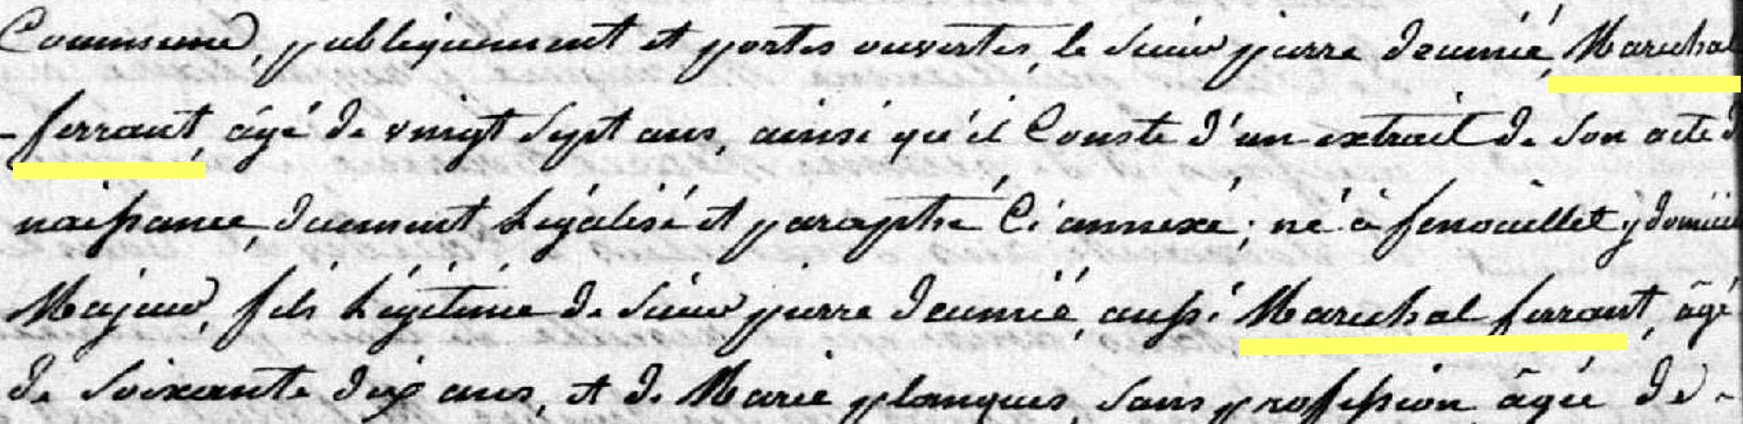 Commune, publiquement et portes ouvertes, le Sieur pierre Deumié, Marechal
-ferrant, âgé de vingt Sept ans, ainsi qu'il Conste d'un extrait de Son acte d
naissance, duement Légalisé et paraphé Ci annexé; né à fenouillet y domicil
Majeur, fils Légitime de Sieur pierre Deumié, aussi Marechal ferrant, âgé
de Soixante dix ans, et de Marie planques, Sans profession âgée de -